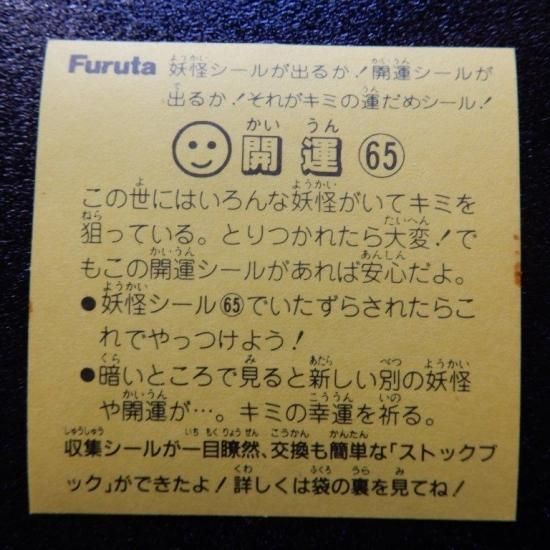 Furuta 妖怪シールが出るか！開運シールが
出るか！それがキミの運だめシール！
開運 65
この世にはいろんな妖怪がいてキミを
狙っている。とりつかれたら大変！で
もこの開運シールがあれば安心だよ。
●妖怪シール65でいたずらされたらこ
れでやっつけよう！
●暗いところで見ると新しい別の妖怪
や開運が…。キミの幸運を祈る。
収集シールが一目瞭然、交換も簡単な「ストックブ
ック」ができたよ！詳しくは袋の裏を見てね！